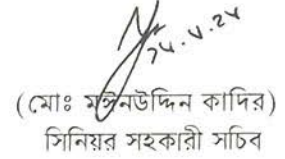 ১৮.৮.২৪
(মোঃ মঈনউদ্দিন কাদির)
সিনিয়র সহকারী সচিব